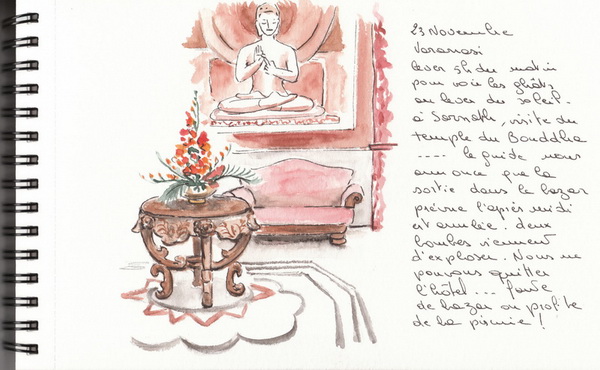 23 Novembre
Varanasi
lever 5h du matin
pour voir les ghâts
au lever du soleil.
à Sarnath, visite du
temple du Bouddha
.... le guide nous
annonce que la
sortie dans le bazar
prévue l'après midi
est annulée. deux
bombes viennent
d'exploser. Nous ne
pouvons quitter
l'hôtel... faute
de bazar on profite
de la piscine !